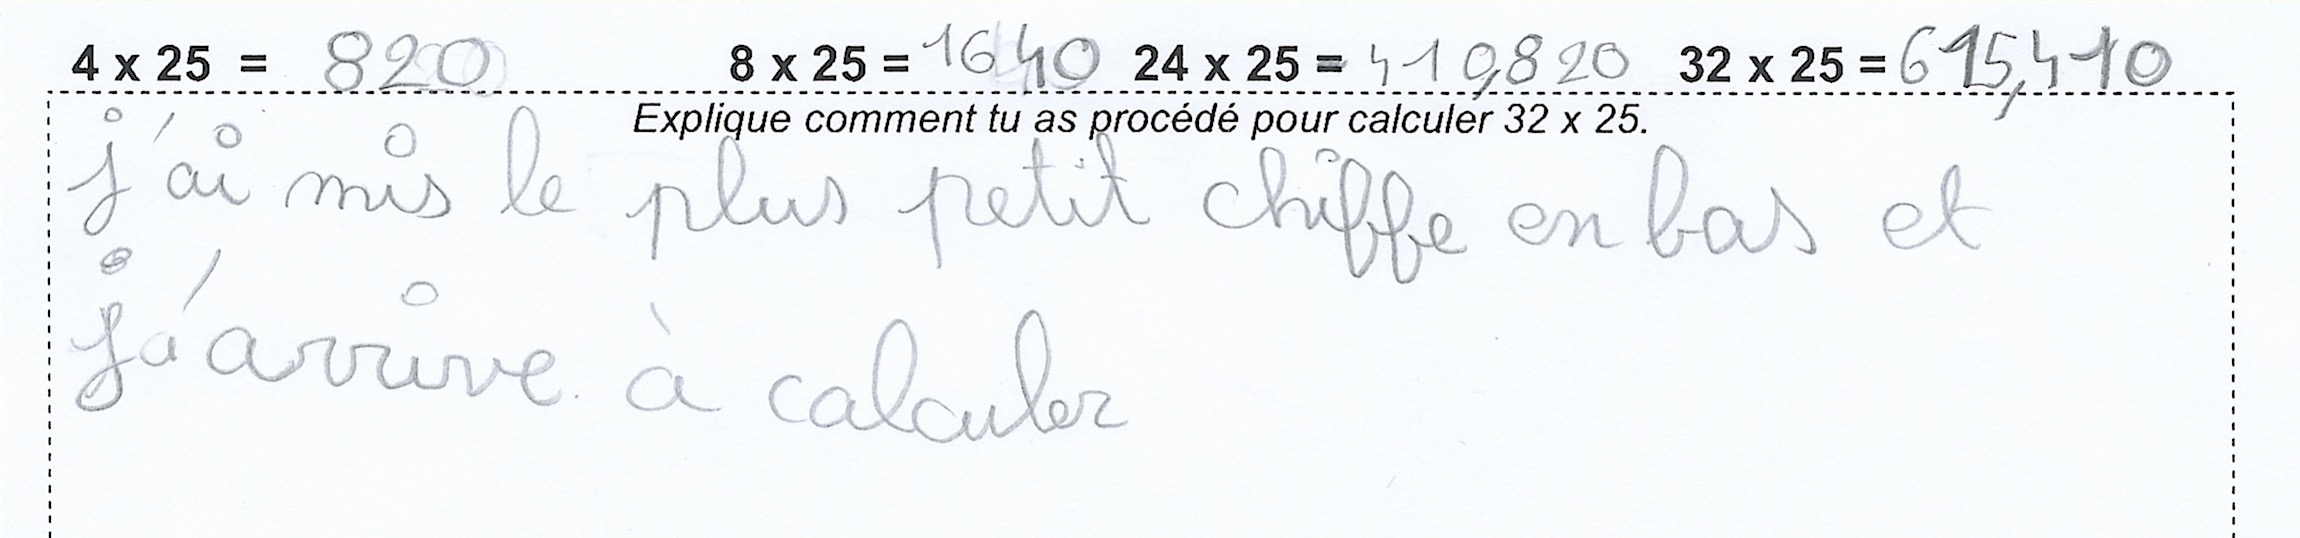 4 x 25 = 820 8 x 25 = 1640 24 x 25 = 410,820 32 x 25 = 615,410
Explique comment tu as procédé pour calculer 32 x 25.
j'ai mis le plus petit chiffe en bas et
j'arrive à calculer